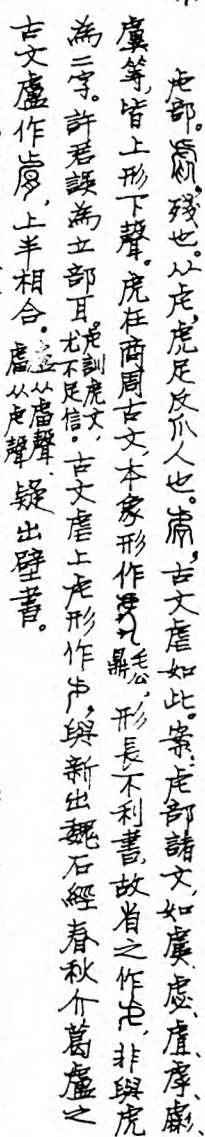 虍部。虐，殘也。从虍，虎足反爪人也。𧆩，古文虐如此。案：虍部諸文，如虞、虙、虘、虖、虨、
虡等，皆上形下聲。虎在商周古文，本象形作毛公鼎，形長不利書，故省之作虍，非與虎
為二字。許君誤為立部耳。虍訓虎文，尤不足信。古文虐上虍形作，與新出魏石經春秋介葛盧之
古文盧作，上半相合。盧从𧇄聲，𧇄从虍聲。疑出壁書。